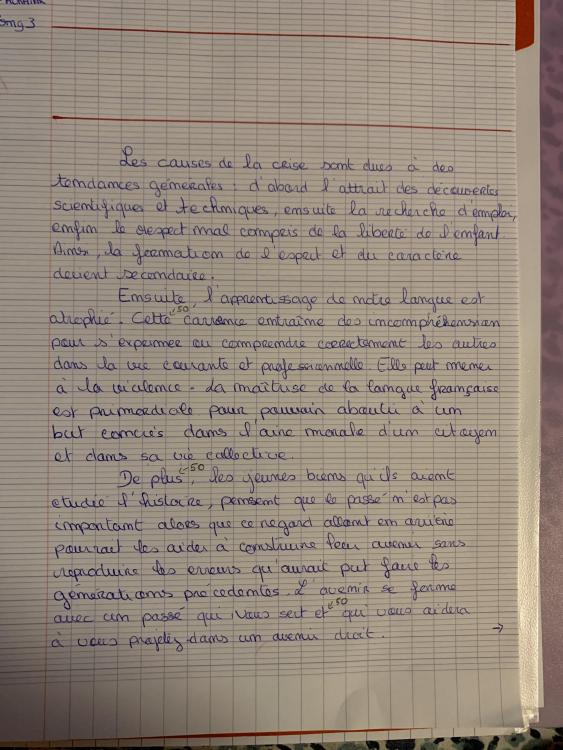 5mg3
Les causes de la crise sont dues à des
tendances générales : d'abord l'attrait des découvertes
scientifiques et techniques, ensuite la recherche d'emploi,
enfin le respect mal compris de la liberté de l'enfant.
Ainsi, la formation de l'esprit et du caractère
devient secondaire.
Ensuite, l'apprentissage de notre langue est
atrophié. Cette <50 carence entraîne des incompréhension
pour s'exprimer ou comprendre correctement les autres
dans la vie courante et professionnelle. Elle peut mener
à la violence. La maîtrise de la langue française
est primordiale pour pouvoir aboutir à un
but concrès dans l'aire morale d'un citoyen
et dans sa vie collective.
De plus <50, les jeunes biens qu'ils avent
étudié l'histoire, pensent que le passé n'est pas
important alors que ce regard allant en arrière
pourrait les aider à construire leur avenir sans
reproduire les erreurs qu'aurait put faire les
générations précédentes. L'avenir se forme
avec un passé qui vous sert et <50 qui vous aidera
à vous projetez dans un avenir droit. →